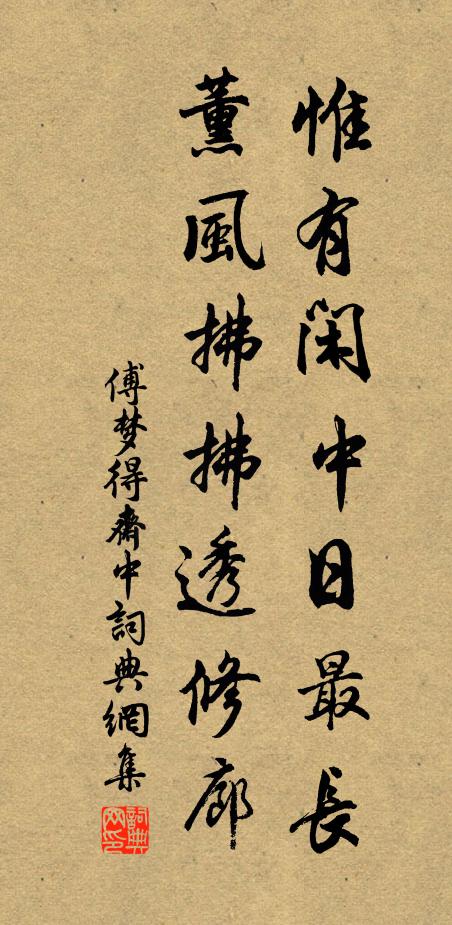 惟有闲中日最长
薰風拂拂透修廊
傅梦得齋中詞典網集
詞典网印